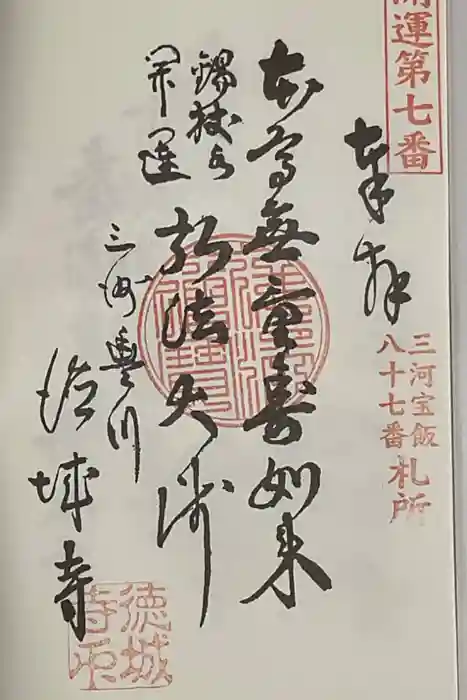 開運第七番
奉拝
三河宝飯
八十七番
札所
本尊無量壽如来
錫杖
開運
弘法大師
三河豐川
徳城寺
徳城
寺印